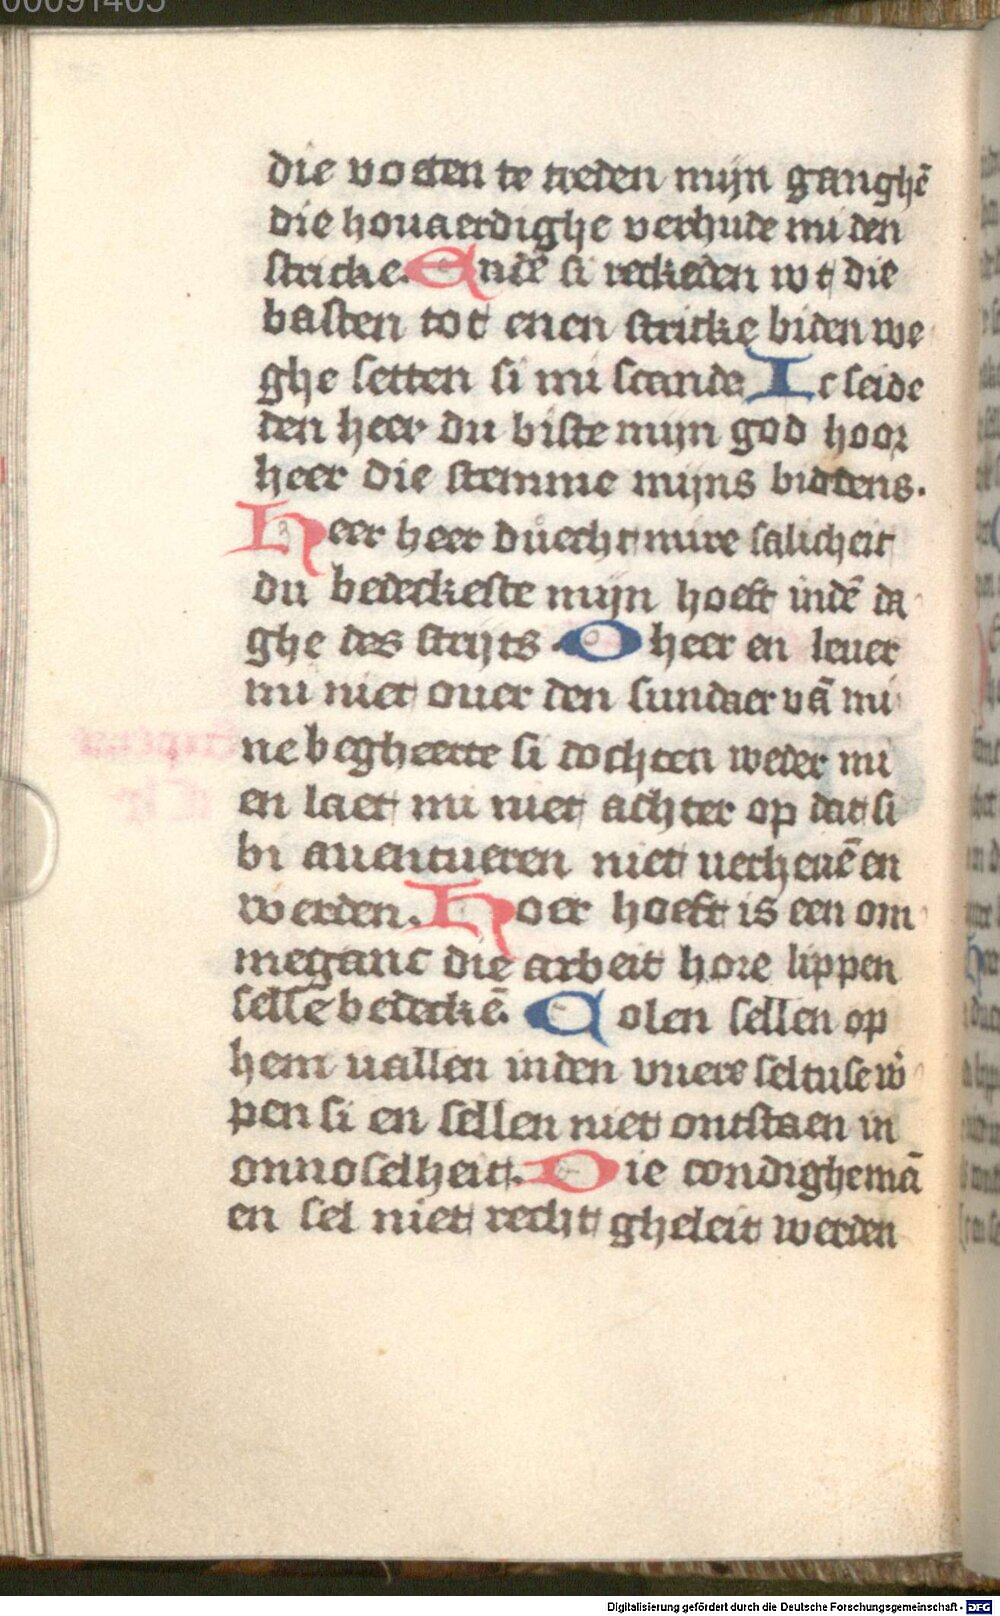 00091405
die voeten te treden mijn ganghē
die houaerdighe verhude mi den
stricke. Endē si reckeden wt die
basten tot enen stricke biden we
ghe setten si mi scande Ic seide
den heer du biste mijn god hoor
heer die stemme mijns biddens.
Heer heer duecht mire salicheit
du bedeckeste mijn hoeft indē da
ghe des strijts. O heer en leuer
mi niet ouer den sundaer vā mi
ne begheerte si dochten weder mi
en laet mi niet achter op dat si
bi auentueren niet verheuē en
werden. Hoer hoeft is een om
meganc die arbeit hore lippen
selle bedeckē. Colen sellen op
hem vallen inden vuere seltuse w̄
pen si en sellen niet ontstaen in
onnoselheit. Die tondighe mā
en sel niet recht gheleit werden
Digitalisierung gefördert durch die Deutsche Forschungsgemeinschaft - DFG